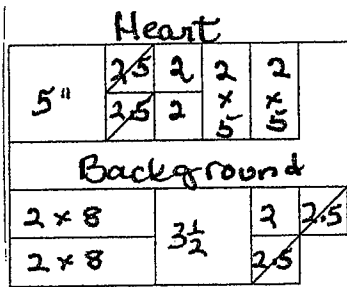 Heart
5" 2.5 2 2 x 5 2 x 5
2.5 2
Background
2 x 8 3 1/2 2 2.5
2 x 8 2.5